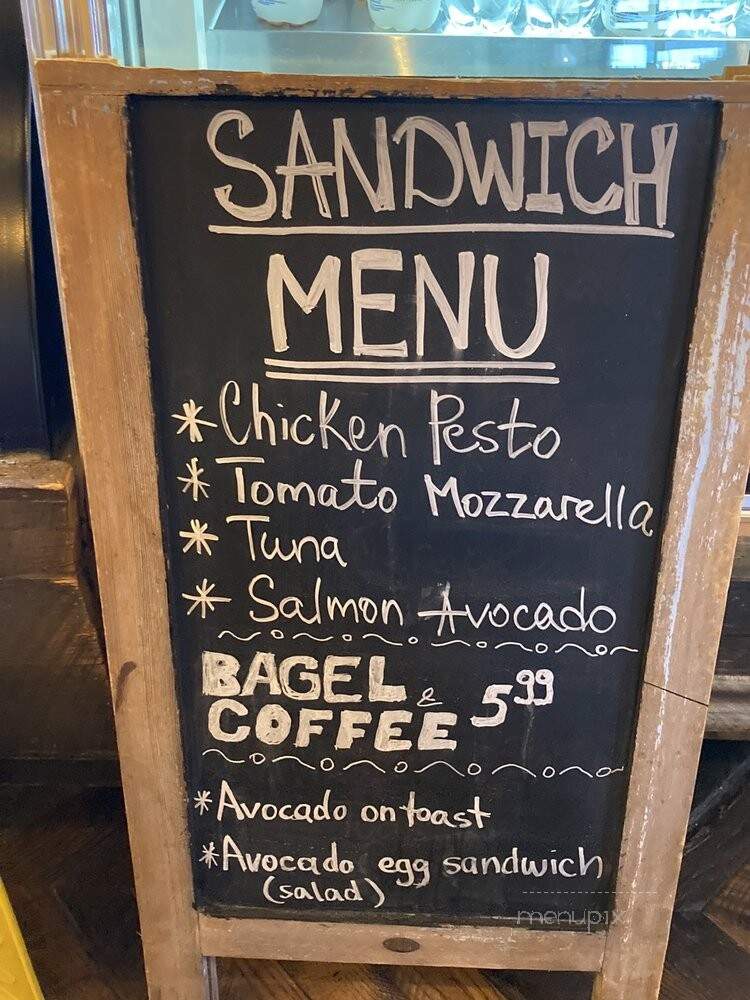 SANDWICH
MENU
* Chicken Pesto
* Tomato Mozzarella
* Tuna
* Salmon Avocado
BAGEL & 5 99
COFFEE
* Avocado on toast
* Avocado egg sandwich
(salad)
menupix